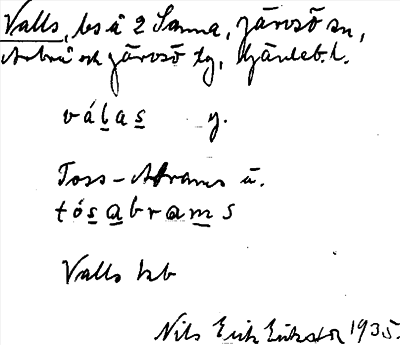 Valls, bs å 2 Sanna, Järvsö sn,
Arbrå och Järvsö tg, Gävleb. l.
válas y.
Joss-Abrams ä.
tósabrams
Valls kb
Nils Erik Eriksson 1935.